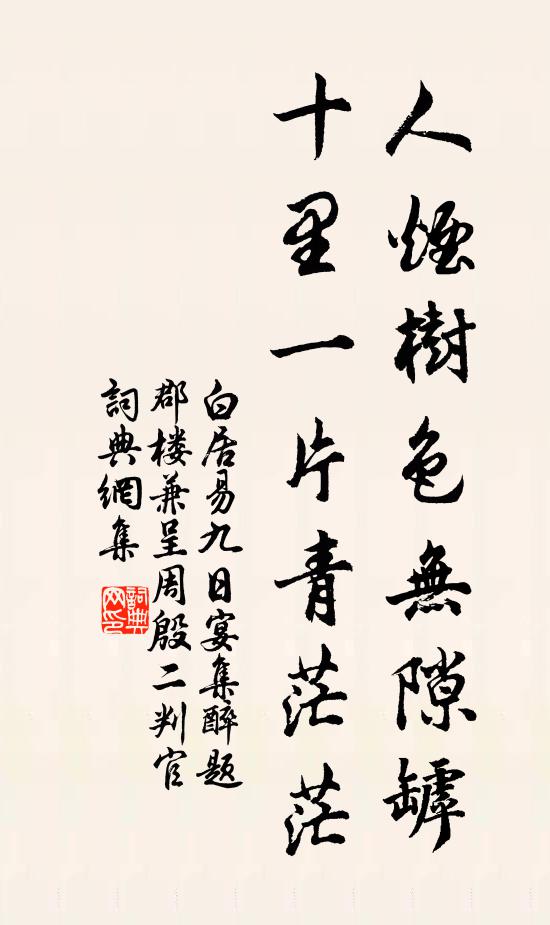 人煙樹色無隙罅
十里一片青茫茫
白居易九日宴集醉題
郡楼兼呈周殷二判官
詞典網集
詞典网印